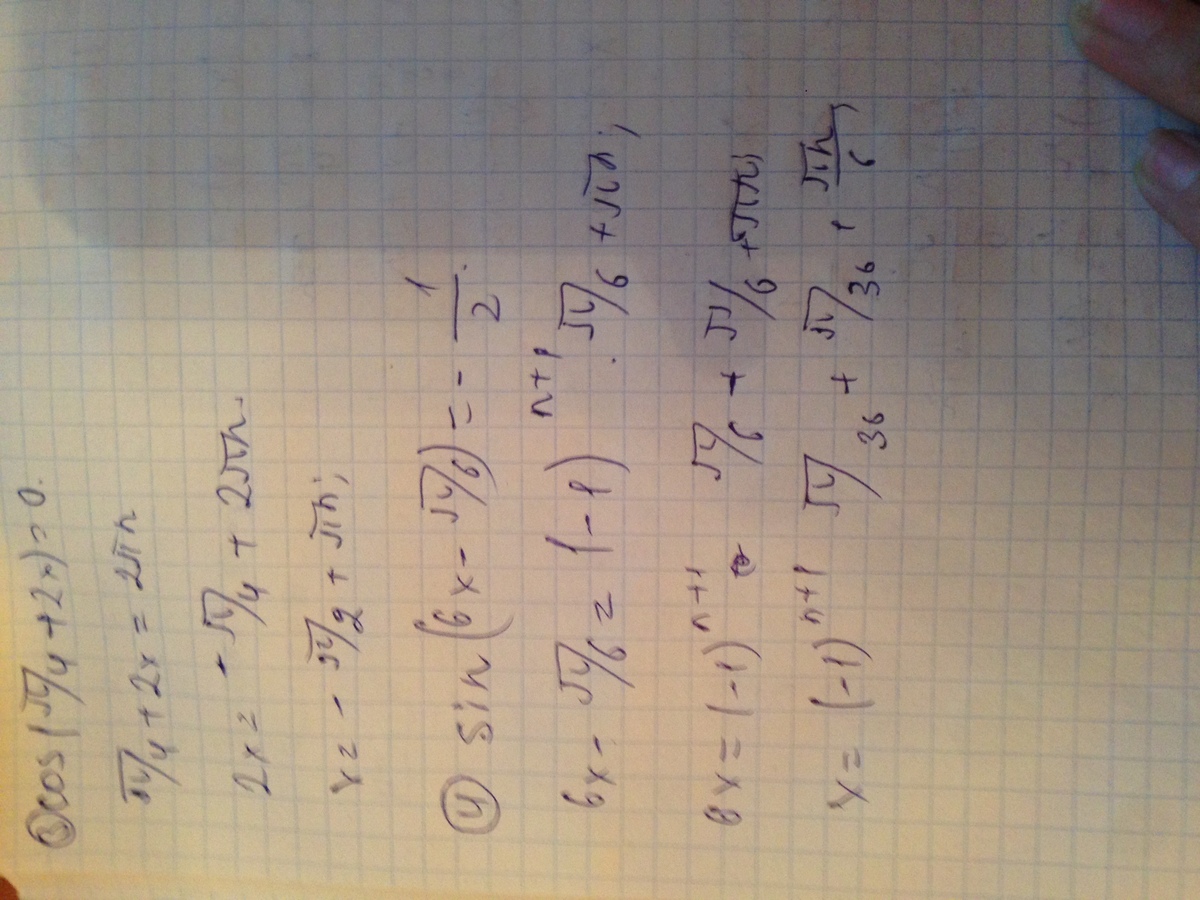 ③ cos(π/4+2x)=0.
π/4+2x=2πn
2x=-π/4+2πn.
x=-π/2+πn;
④ sin(6x-π/6)=-1/2.
6x-π/6=(-1)^{n+1}·π/6+πn;
6x=(-1)^{n+1} π/6+π/6+πn;
x=(-1)^{n+1} π/36+π/36+πn/6,